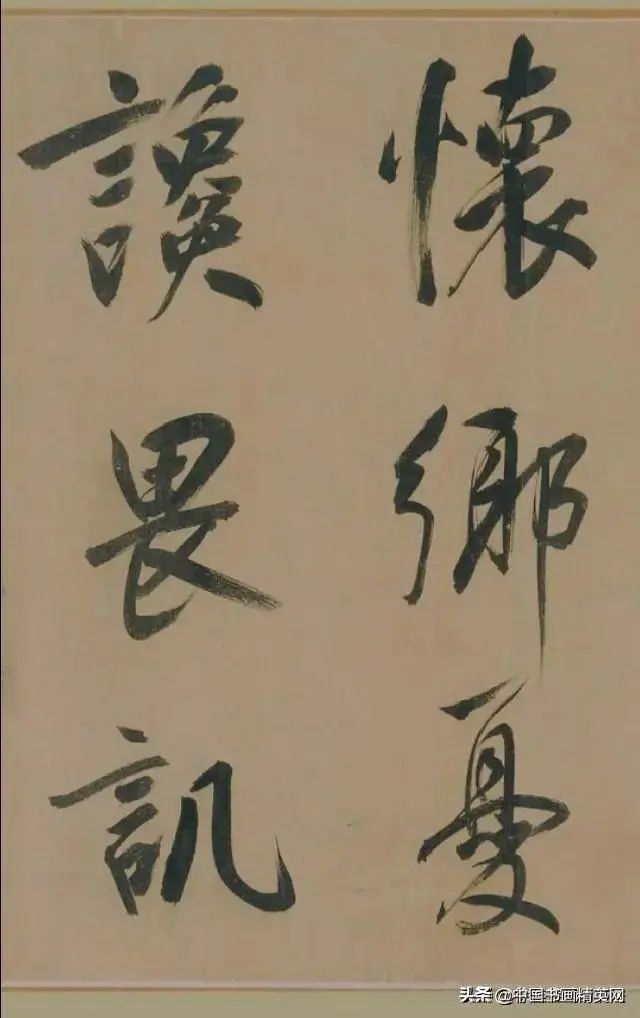 懷鄉憂
讒畏譏
头条 @中国书画精英网